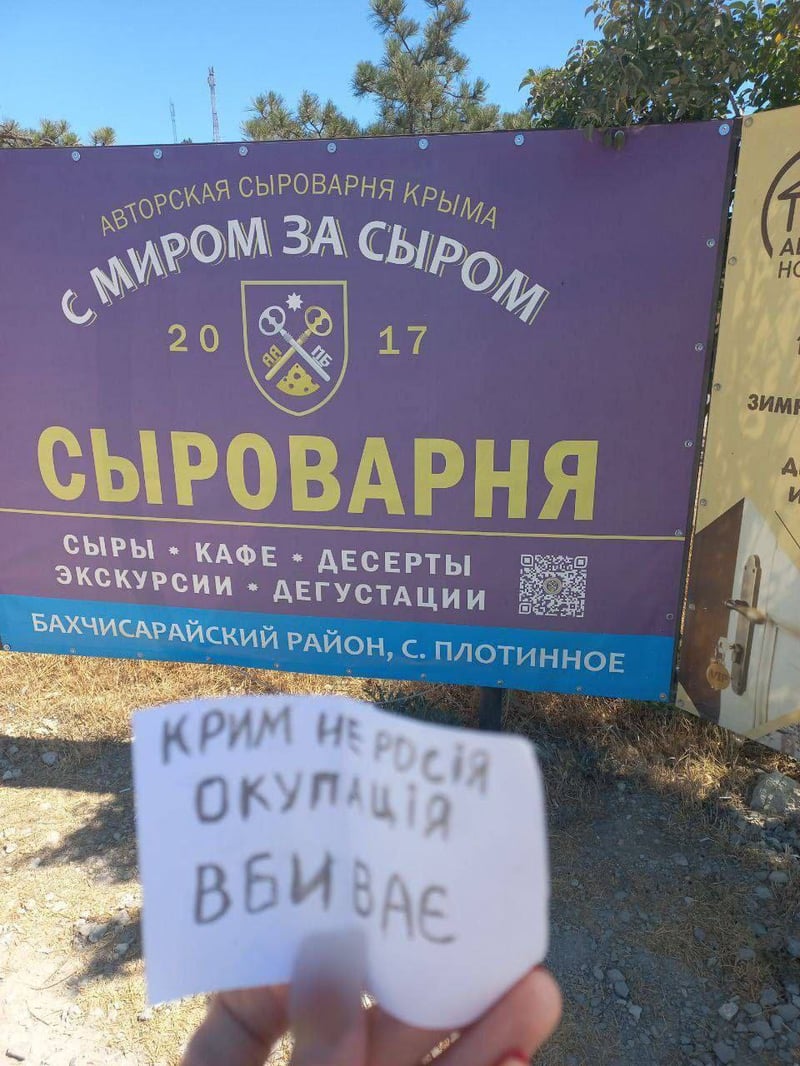 АВТОРСКАЯ СЫРОВАРНЯ КРЫМА
С МИРОМ ЗА СЫРОМ
20 17
ЯА ПБ
СЫРОВАРНЯ
СЫРЫ * КАФЕ * ДЕСЕРТЫ
ЭКСКУРСИИ * ДЕГУСТАЦИИ
БАХЧИСАРАЙСКИЙ РАЙОН, С. ПЛОТИННОЕ
КРИМ НЕ РОСІЯ
ОКУПАЦІЯ
ВБИВАЄ